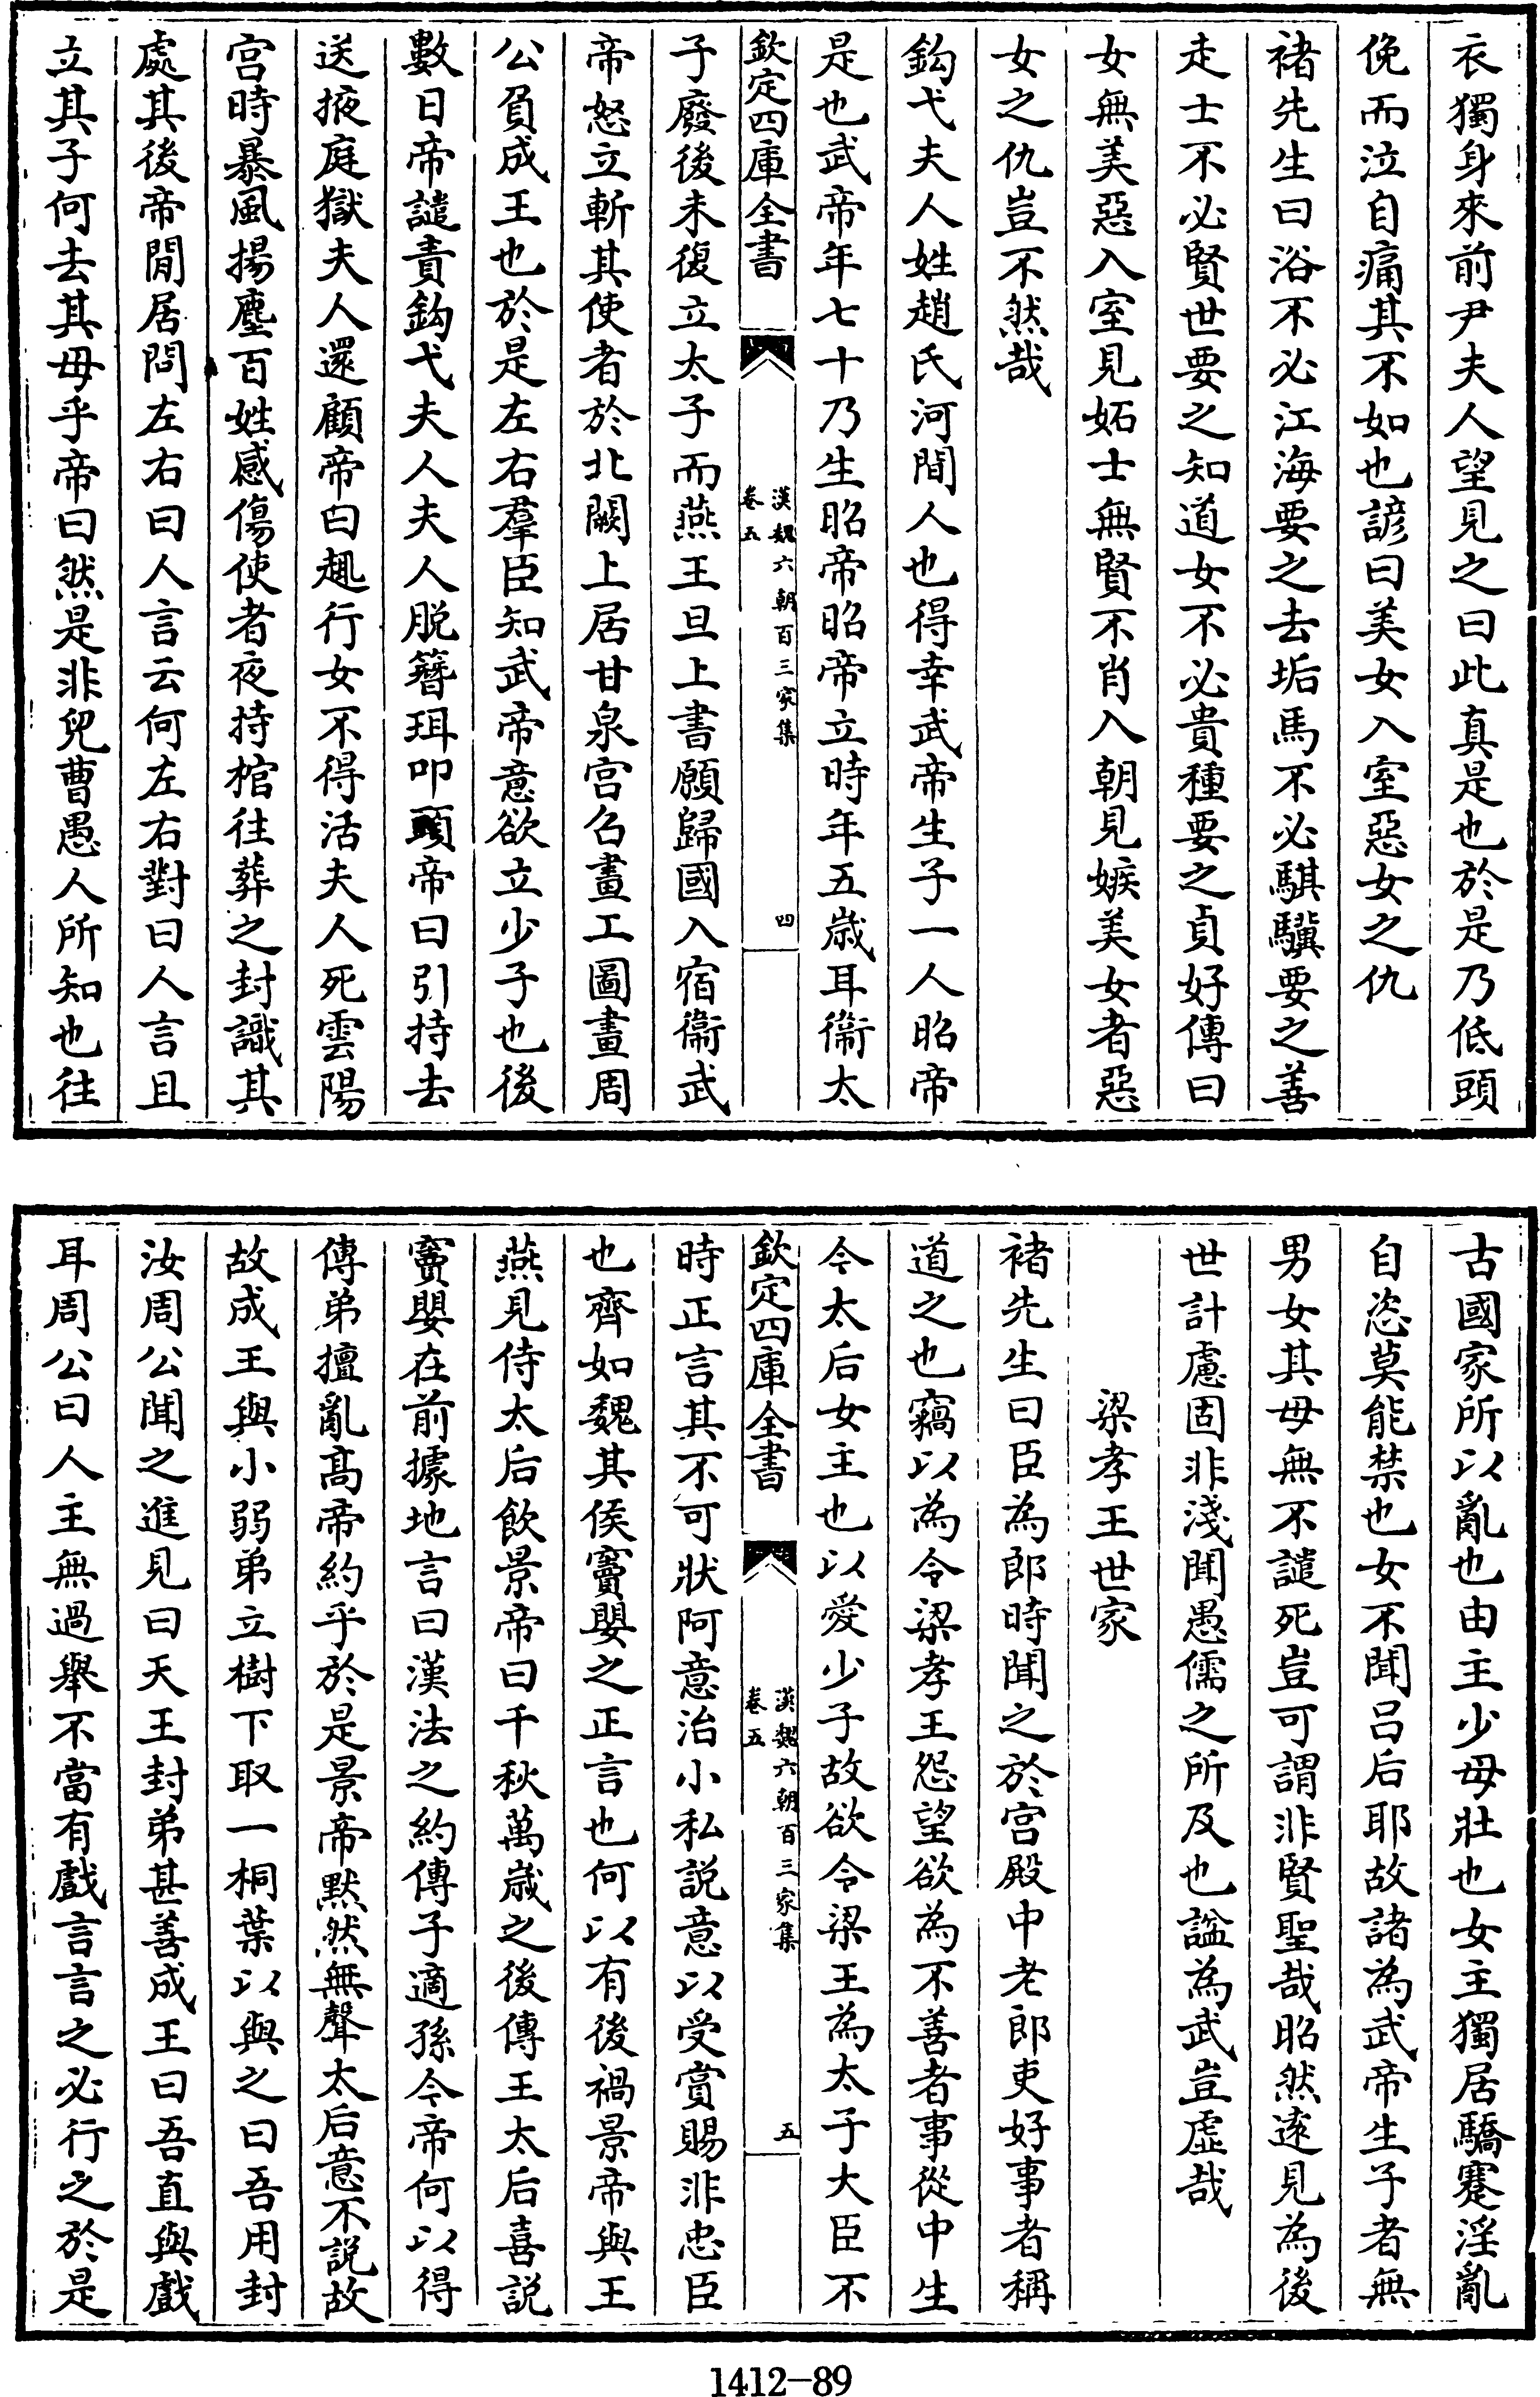 衣獨身來前尹夫人望見之曰此真是也於是乃低頭
俛而泣自痛其不如也諺曰美女入室惡女之仇
褚先生曰浴不必江海要之去垢馬不必騏驥要之善
走士不必賢世要之知道女不必貴種要之貞好傳曰
女無美惡入室見妬士無賢不肖入朝見嫉美女者惡
女之仇豈不然哉
鈎弋夫人姓趙氏河間人也得幸武帝生子一人昭帝
是也武帝年七十乃生昭帝昭帝立時年五歲耳衞太
欽定四庫全書
漢魏六朝百三家集
卷五
四
子廢後未復立太子而燕王旦上書願歸國入宿衞武
帝怒立斬其使者於北闕上居甘泉宮召畫工圖畫周
公負成王也於是左右羣臣知武帝意欲立少子也後
數日帝譴責鈎弋夫人夫人脫簪珥叩頭帝曰引持去
送掖庭獄夫人還顧帝曰趣行女不得活夫人死雲陽
宮時暴風揚塵百姓感傷使者夜持棺往葬之封識其
處其後帝閒居問左右曰人言云何左右對曰人言且
立其子何去其母乎帝曰然是非兒曹愚人所知也往
古國家所以亂也由主少母壯也女主獨居驕蹇淫亂
自恣莫能禁也女不聞呂后耶故諸為武帝生子者無
男女其母無不譴死豈可謂非賢聖哉昭然遠見為後
世計慮固非淺聞愚儒之所及也諡為武豈虛哉
梁孝王世家
褚先生曰臣為郎時聞之於宮殿中老郎吏好事者稱
道之也竊以為令梁孝王怨望欲為不善者事從中生
今太后女主也以愛少子故欲令梁王為太子大臣不
欽定四庫全書
漢魏六朝百三家集
卷五
五
時正言其不可狀阿意治小私說意以受賞賜非忠臣
也齊如魏其侯竇嬰之正言也何以有後禍景帝與王
燕見侍太后飲景帝曰千秋萬歲之後傳王太后喜說
竇嬰在前據地言曰漢法之約傳子適孫今帝何以得
傳弟擅亂高帝約乎於是景帝默然無聲太后意不說故
故成王與小弱弟立樹下取一桐葉以與之曰吾用封
汝周公聞之進見曰天王封弟甚善成王曰吾直與戲
耳周公曰人主無過舉不當有戲言言之必行之於是
1412-89